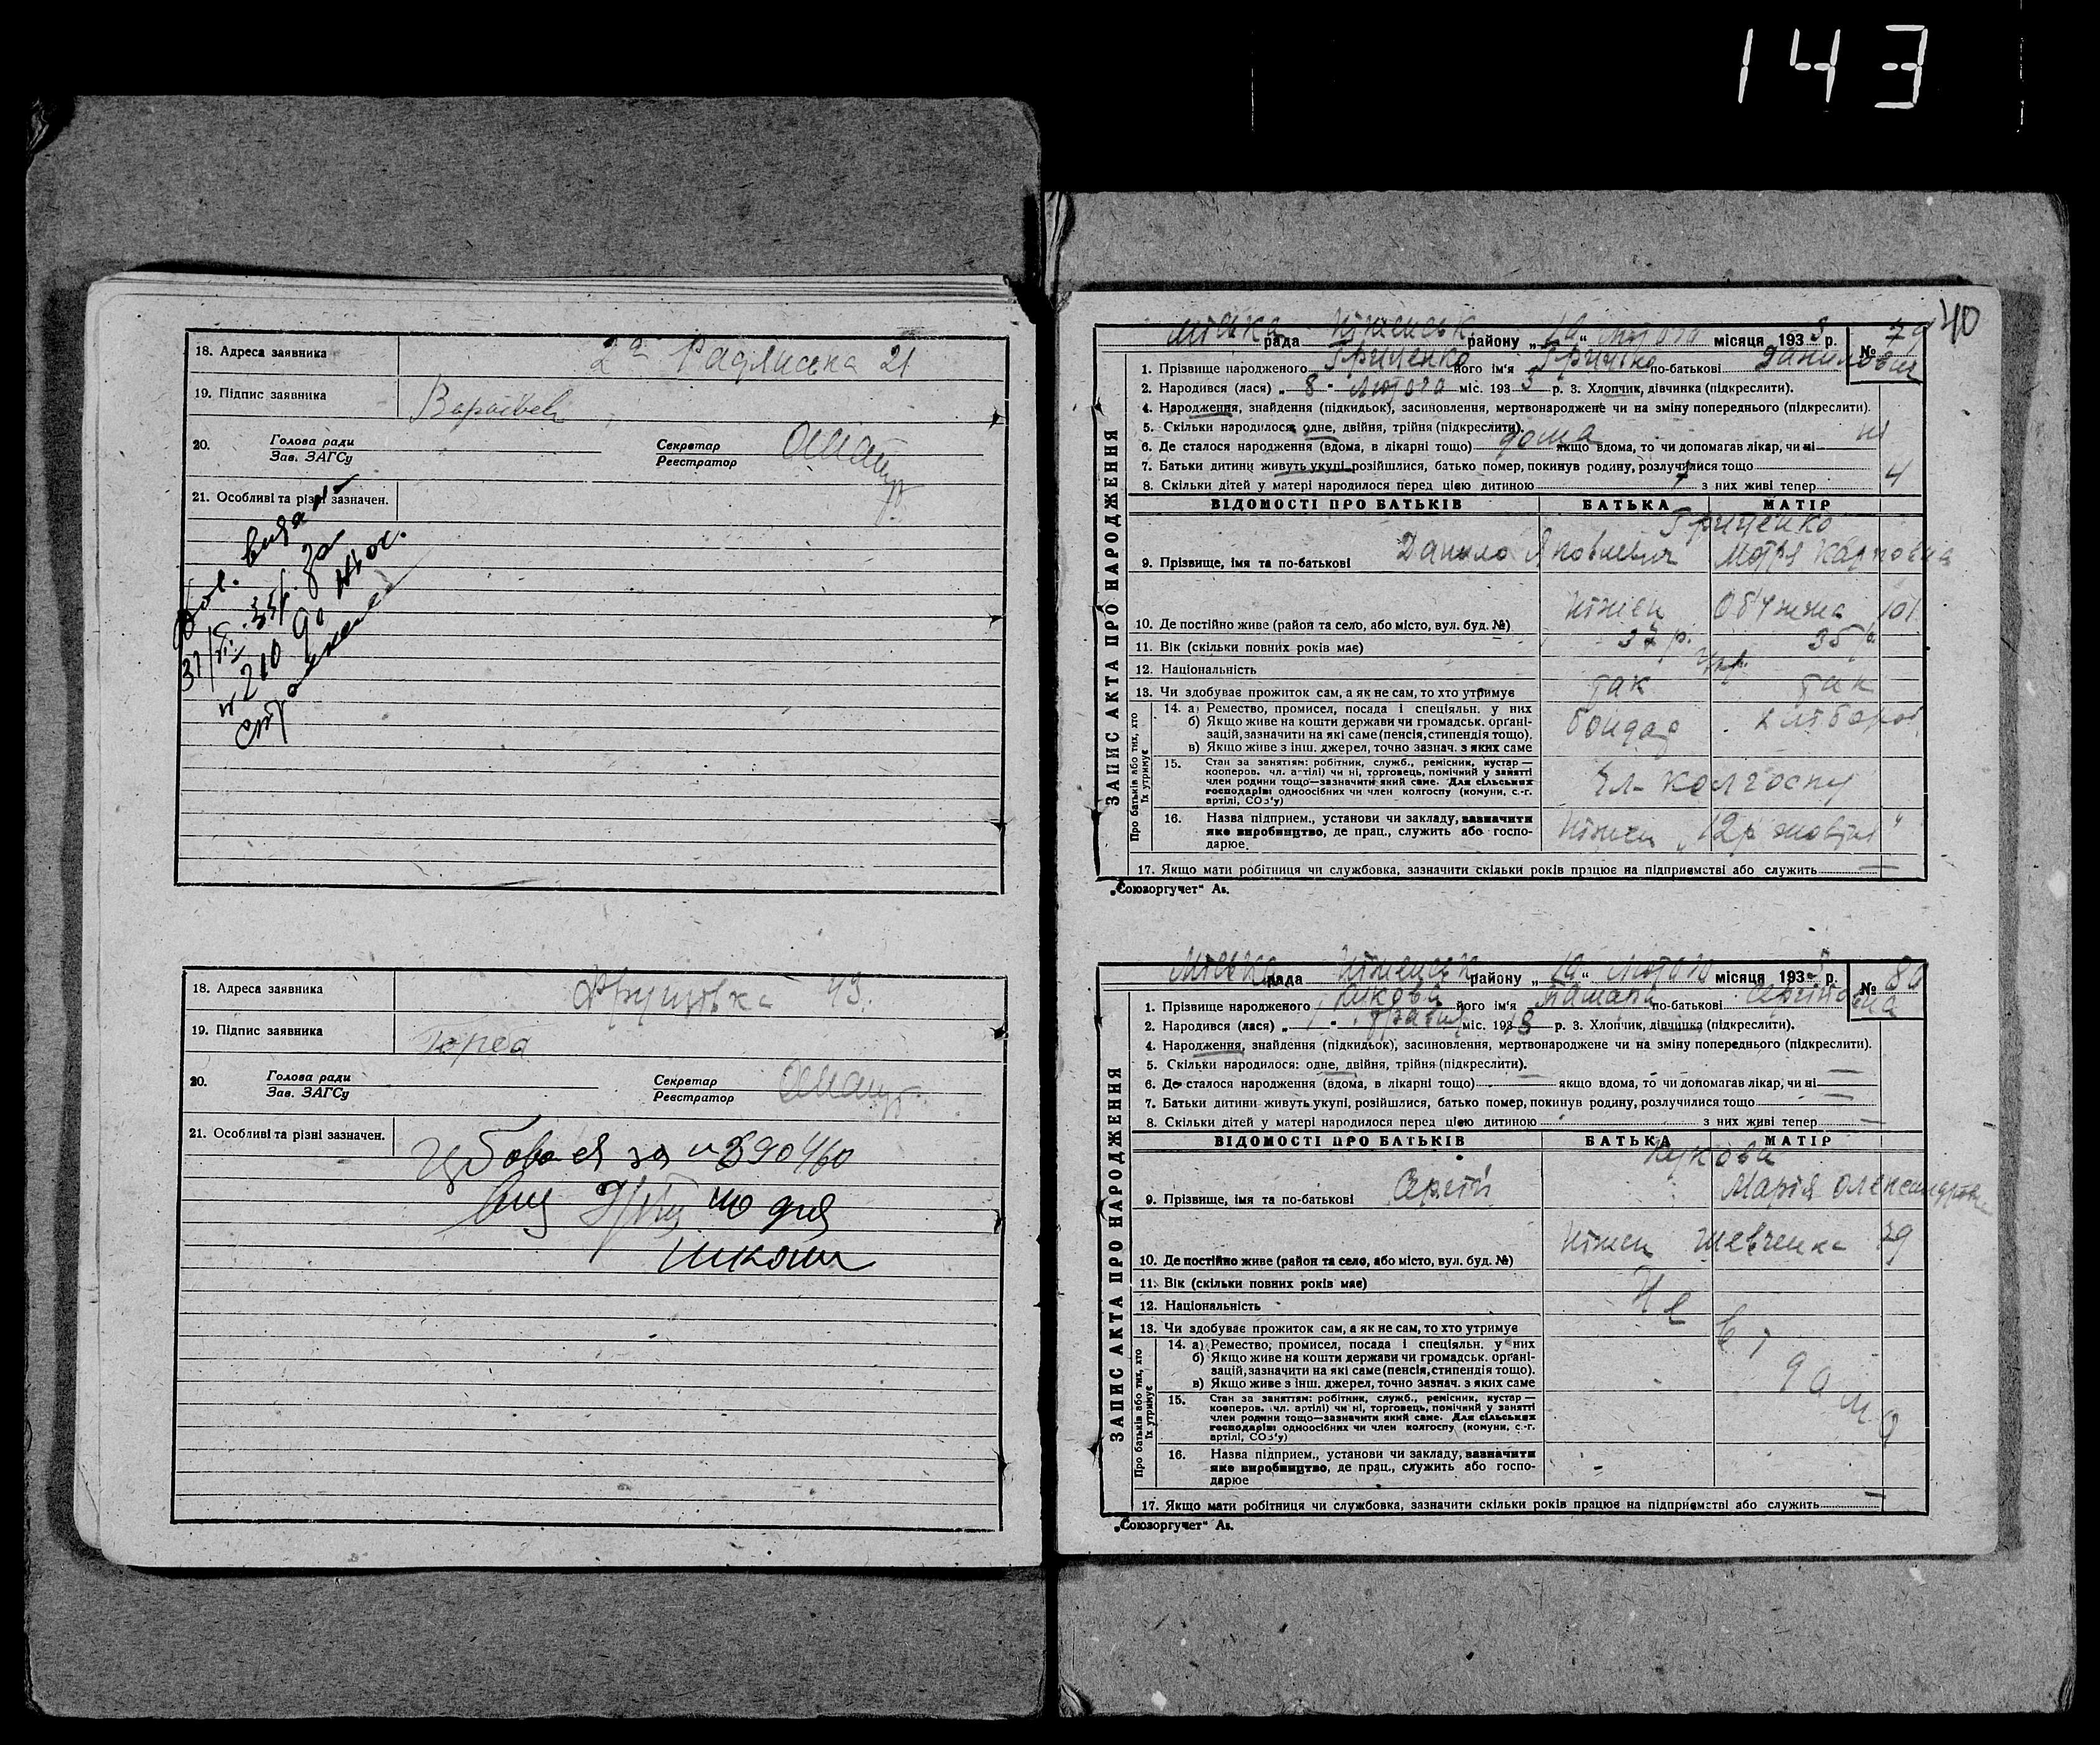 143
18. Адреса заявника 2а Радянська 21
19. Підпис заявника
20. Голова ради
Зав. ЗАГСу
Секретар
Реєстратор
21. Особливі та різні зазначен.
18. Адреса заявника 43.
19. Підпис заявника Горба
20. Голова ради
Зав. ЗАГСу
Секретар
Реєстратор
21. Особливі та різні зазначен.
40
ЗАПИС АКТА ПРО НАРОДЖЕННЯ
Міська рада Ніженськ. району „10“ лютого місяця 1933 р. № 79
1. Прізвище народженого Гриценко його ім'я Грицько по-батькові Данилович
2. Народився (лася) „8“ лютого міс. 1933 р. 3. Хлопчик, дівчинка (підкреслити).
4. Народження, знайдення (підкидьок), засиновлення, мертвонароджене чи на зміну попереднього (підкреслити).
5. Скільки народилося: одне, двійня, трійня (підкреслити).
6. Де сталося народження (вдома, в лікарні тощо) дома якщо вдома, то чи допомагав лікар, чи ні ні
7. Батьки дитини живуть укупі, розійшлися, батько помер, покинув родину, розлучилися тощо
8. Скільки дітей у матері народилося перед цією дитиною з них живі тепер 4
ВІДОМОСТІ ПРО БАТЬКІВ БАТЬКА МАТІР
Гриценко
9. Прізвище, імя та по-батькові Данило Яковлевич Мотря Карповна
10. Де постійно живе (район та село, або місто, вул. буд. №) Ніжен Об'їжжа 101
11. Вік (скільки повних років має) 37 р. 35 р.
12. Національність укр.
13. Чи здобуває прожиток сам, а як не сам, то хто утримує так так
Про батьків або тих, хто їх утримує
14. а) Ремество, промисел, посада і спеціяльн. у них бондар хлібороб
б) Якщо живе на кошти держави чи громадськ. органі-
зацій, зазначити на які саме (пенсія, стипендія тощо).
в) Якщо живе з інш. джерел, точно зазнач. з яких саме
15. Стан за занятям: робітник, служб., ремісник, кустар —
кооперов. чл. артілі) чи ні, торговець, помічний у занятті
член родини тощо—зазначити який саме. Для сільських
господарів: одноосібних чи член колгоспу (комуни, с.-г.
артілі, СОЗ'у)
Чл. колгоспу
16. Назва підприєм., установи чи закладу, зазначити
яке виробництво, де прац., служить або госпо-
дарює.
Ніжен „12 р жовтня“
17. Якщо мати робітниця чи службовка, зазначити скільки років працює на підприємстві або служить
„Союзоргучет“ Ак.
ЗАПИС АКТА ПРО НАРОДЖЕННЯ
Міська рада Ніженськ. району „10“ лютого місяця 1933 р. № 80
1. Прізвище народженого його ім'я Тамара по-батькові Сергіївна
2. Народився (лася) міс. 193 р. 3. Хлопчик, дівчинка (підкреслити).
4. Народження, знайдення (підкидьок), засиновлення, мертвонароджене чи на зміну попереднього (підкреслити).
5. Скільки народилося: одне, двійня, трійня (підкреслити).
6. Де сталося народження (вдома, в лікарні тощо) якщо вдома, то чи допомагав лікар, чи ні
7. Батьки дитини живуть укупі, розійшлися, батько помер, покинув родину, розлучилися тощо
8. Скільки дітей у матері народилося перед цією дитиною з них живі тепер
ВІДОМОСТІ ПРО БАТЬКІВ БАТЬКА МАТІР
9. Прізвище, імя та по-батькові Сергій Марія Олександровна
10. Де постійно живе (район та село, або місто, вул. буд. №) Ніжен Шевченка
11. Вік (скільки повних років має)
12. Національність
13. Чи здобуває прожиток сам, а як не сам, то хто утримує
Невідомо
Про батьків або тих, хто їх утримує
14. а) Ремество, промисел, посада і спеціяльн. у них
б) Якщо живе на кошти держави чи громадськ. органі-
зацій, зазначити на які саме (пенсія, стипендія тощо).
в) Якщо живе з інш. джерел, точно зазнач. з яких саме
15. Стан за заняттям: робітник, служб., ремісник, кустар —
кооперов. чл. артілі) чи ні, торговець, помічний у занятті
член родини тощо—зазначити який саме. Для сільських
господарів: одноосібних чи член колгоспу (комуни, с.-г.
артілі, СОЗ'у)
16. Назва підприєм., установи чи закладу, зазначити
яке виробництво, де прац., служить або госпо-
дарює
17. Якщо мати робітниця чи службовка, зазначити скільки років працює на підприємстві або служить
„Союзоргучет“ Ак.